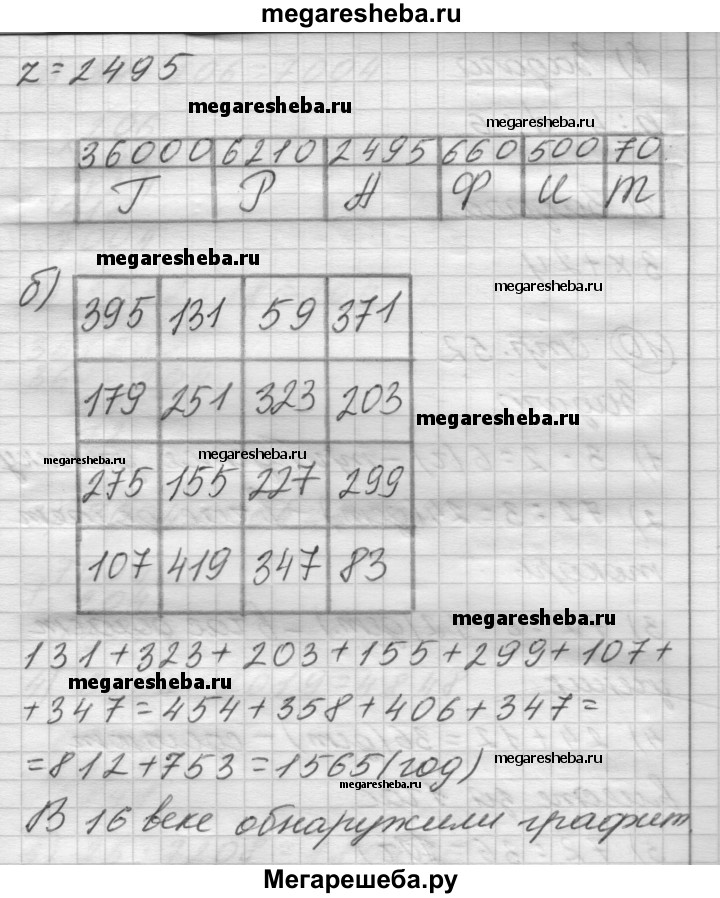 megaresheba.ru
z = 2495
megaresheba.ru
megaresheba.ru
36000 6210 2495 660 500 70
Г Р А Ф И Т
megaresheba.ru
б)
megaresheba.ru
395 131 59 371
179 251 323 203
megaresheba.ru
megaresheba.ru
megaresheba.ru
275 155 227 299
107 419 347 83
megaresheba.ru
131 + 323 + 203 + 155 + 299 + 107 +
megaresheba.ru
+ 347 = 454 + 358 + 406 + 347 =
= 812 + 753 = 1565 (год)
megaresheba.ru
megaresheba.ru
В 16 веке обнаружили графит.
Мегарешеба.ру